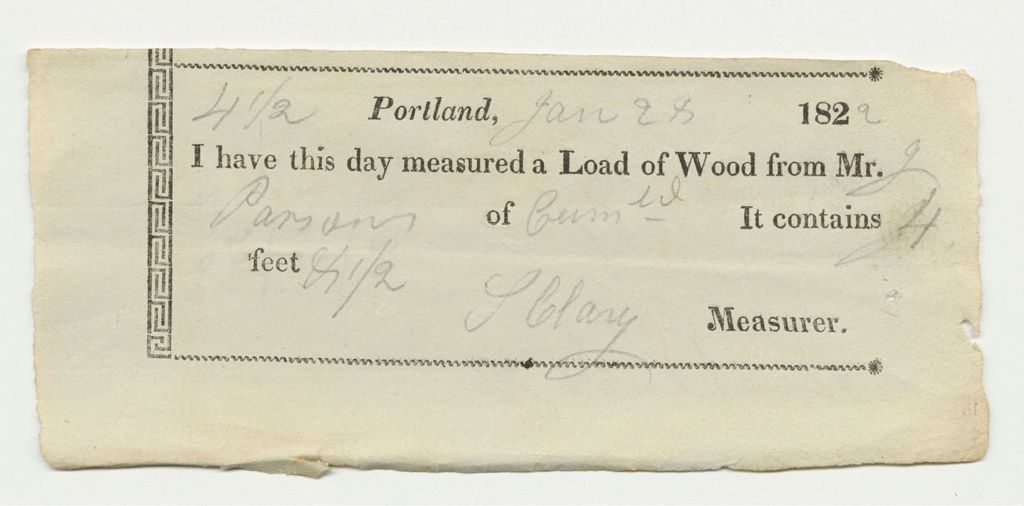 4 1/2 Portland, Jan 28 1822
I have this day measured a Load of Wood from Mr. J
Parsons of Cum^ld It contains 4
feet & 1/2
S Clary Measurer.